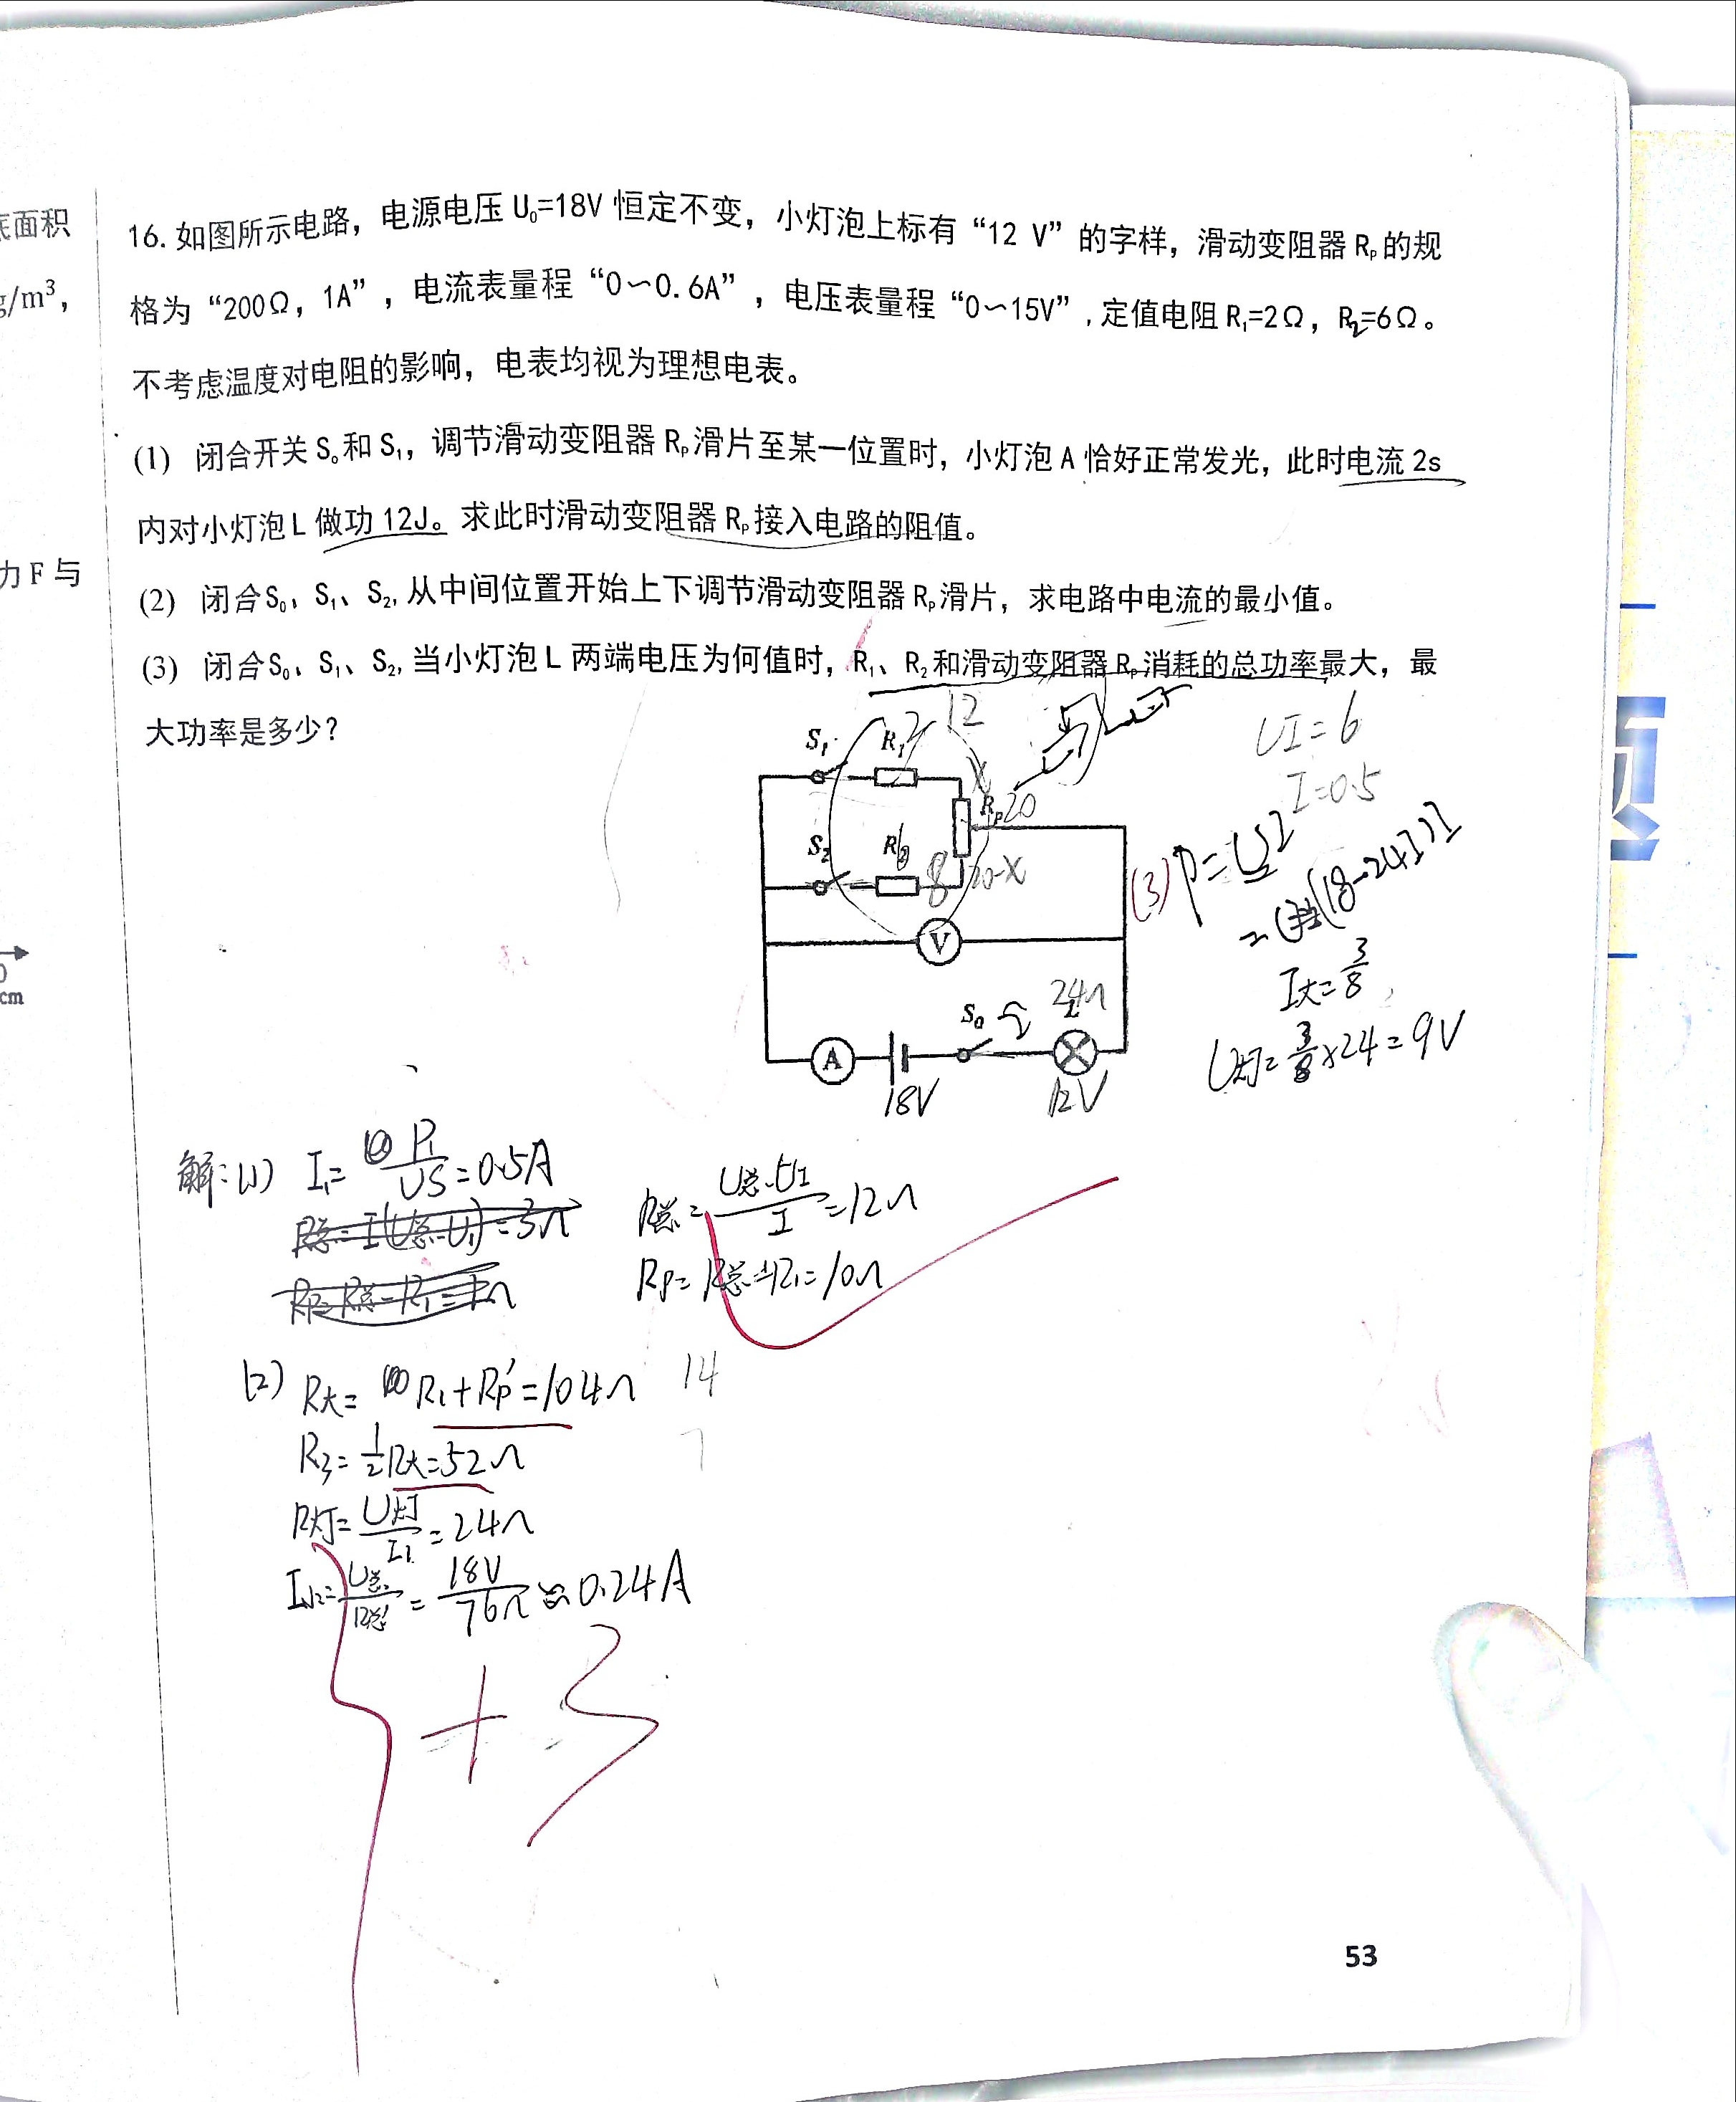 底面积
g/m³,
力 F 与
cm
16. 如图所示电路，电源电压 U₀=18V 恒定不变，小灯泡上标有“12 V”的字样，滑动变阻器 Rₚ 的规
格为“200Ω，1A”，电流表量程“0～0.6A”，电压表量程“0～15V”,定值电阻 R₁=2Ω，R₂=6Ω。
不考虑温度对电阻的影响，电表均视为理想电表。
(1) 闭合开关 S₀和 S₁，调节滑动变阻器 Rₚ滑片至某一位置时，小灯泡 A 恰好正常发光，此时电流 2s
内对小灯泡 L 做功 12J。求此时滑动变阻器 Rₚ接入电路的阻值。
(2) 闭合 S₀、S₁、S₂, 从中间位置开始上下调节滑动变阻器 Rₚ滑片，求电路中电流的最小值。
(3) 闭合 S₀、S₁、S₂, 当小灯泡 L 两端电压为何值时，R₁、R₂ 和滑动变阻器 Rₚ 消耗的总功率最大，最
大功率是多少?
12
S₁
R₁
2
X
Rₚ
20
S₂
R₂
8
20-X
V
S₀
24Ω
L
A
18V
12V
UI=6
I=0.5
(3) P=UI
=(18-24I)I
I大=3/8
U灯=3/8×24=9V
解:(1) I₁=P₁/US=0.5A
R总=I(U总-U₁)=3Ω
R总=U总-U₁/I=12Ω
RP=R总-R₁=10Ω
(2) R大=R₁+RP′=104Ω
14
R₃=1/2R大=52Ω
7
R灯=U灯/I₁=24Ω
I小=U总/R总=18V/76Ω≈0.24A
+3
53